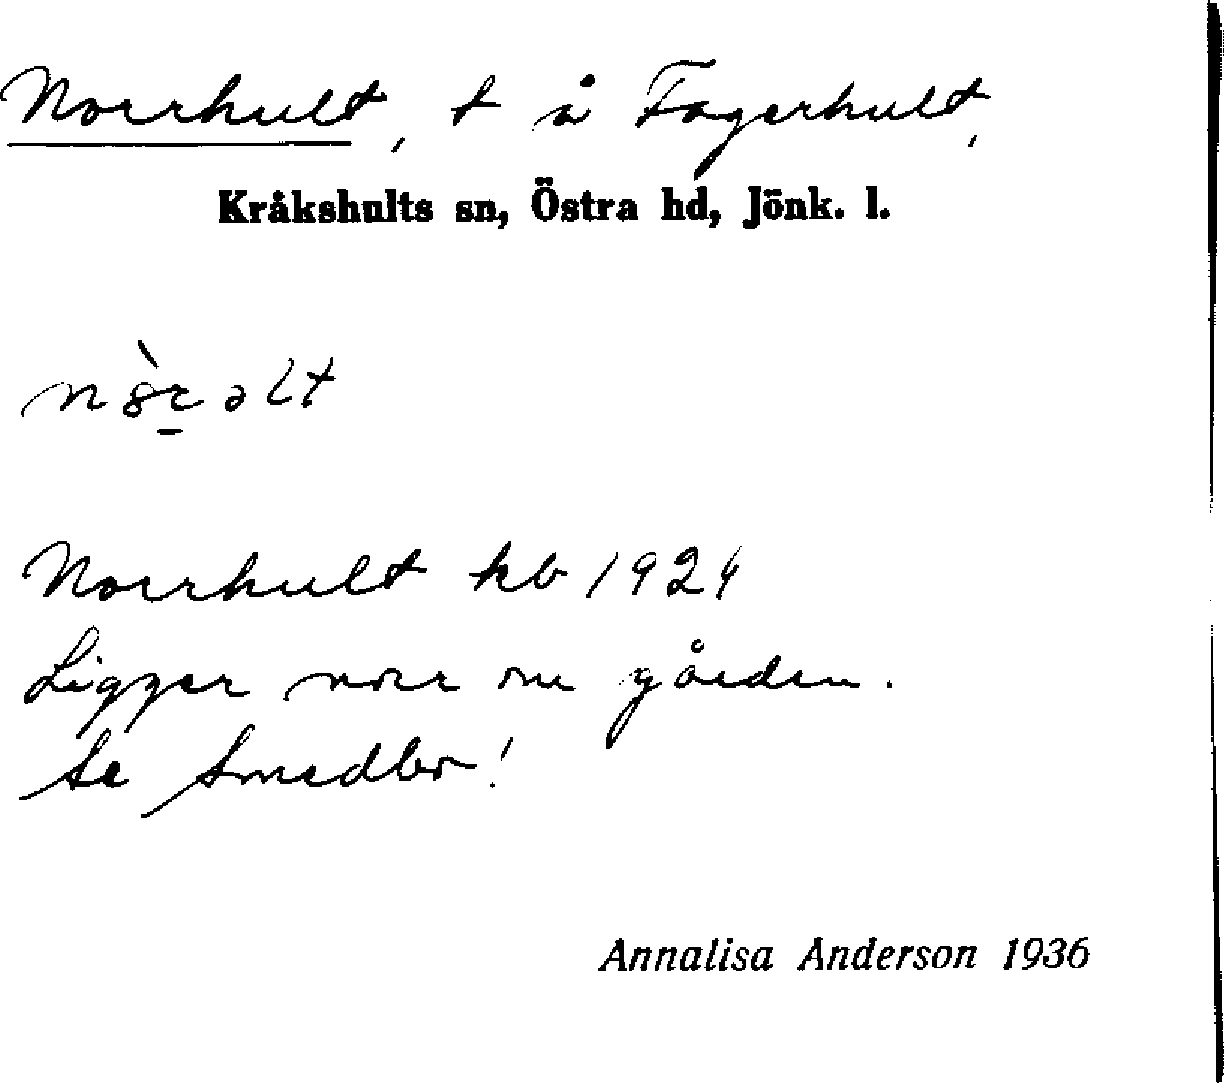 Norrhult, t å Fagerhult,
Kråkshults sn, Östra hd, Jönk. l.
Norrhult kb 1924
Ligger norr om gården.
Se Smedbo!
Annalisa Anderson 1936